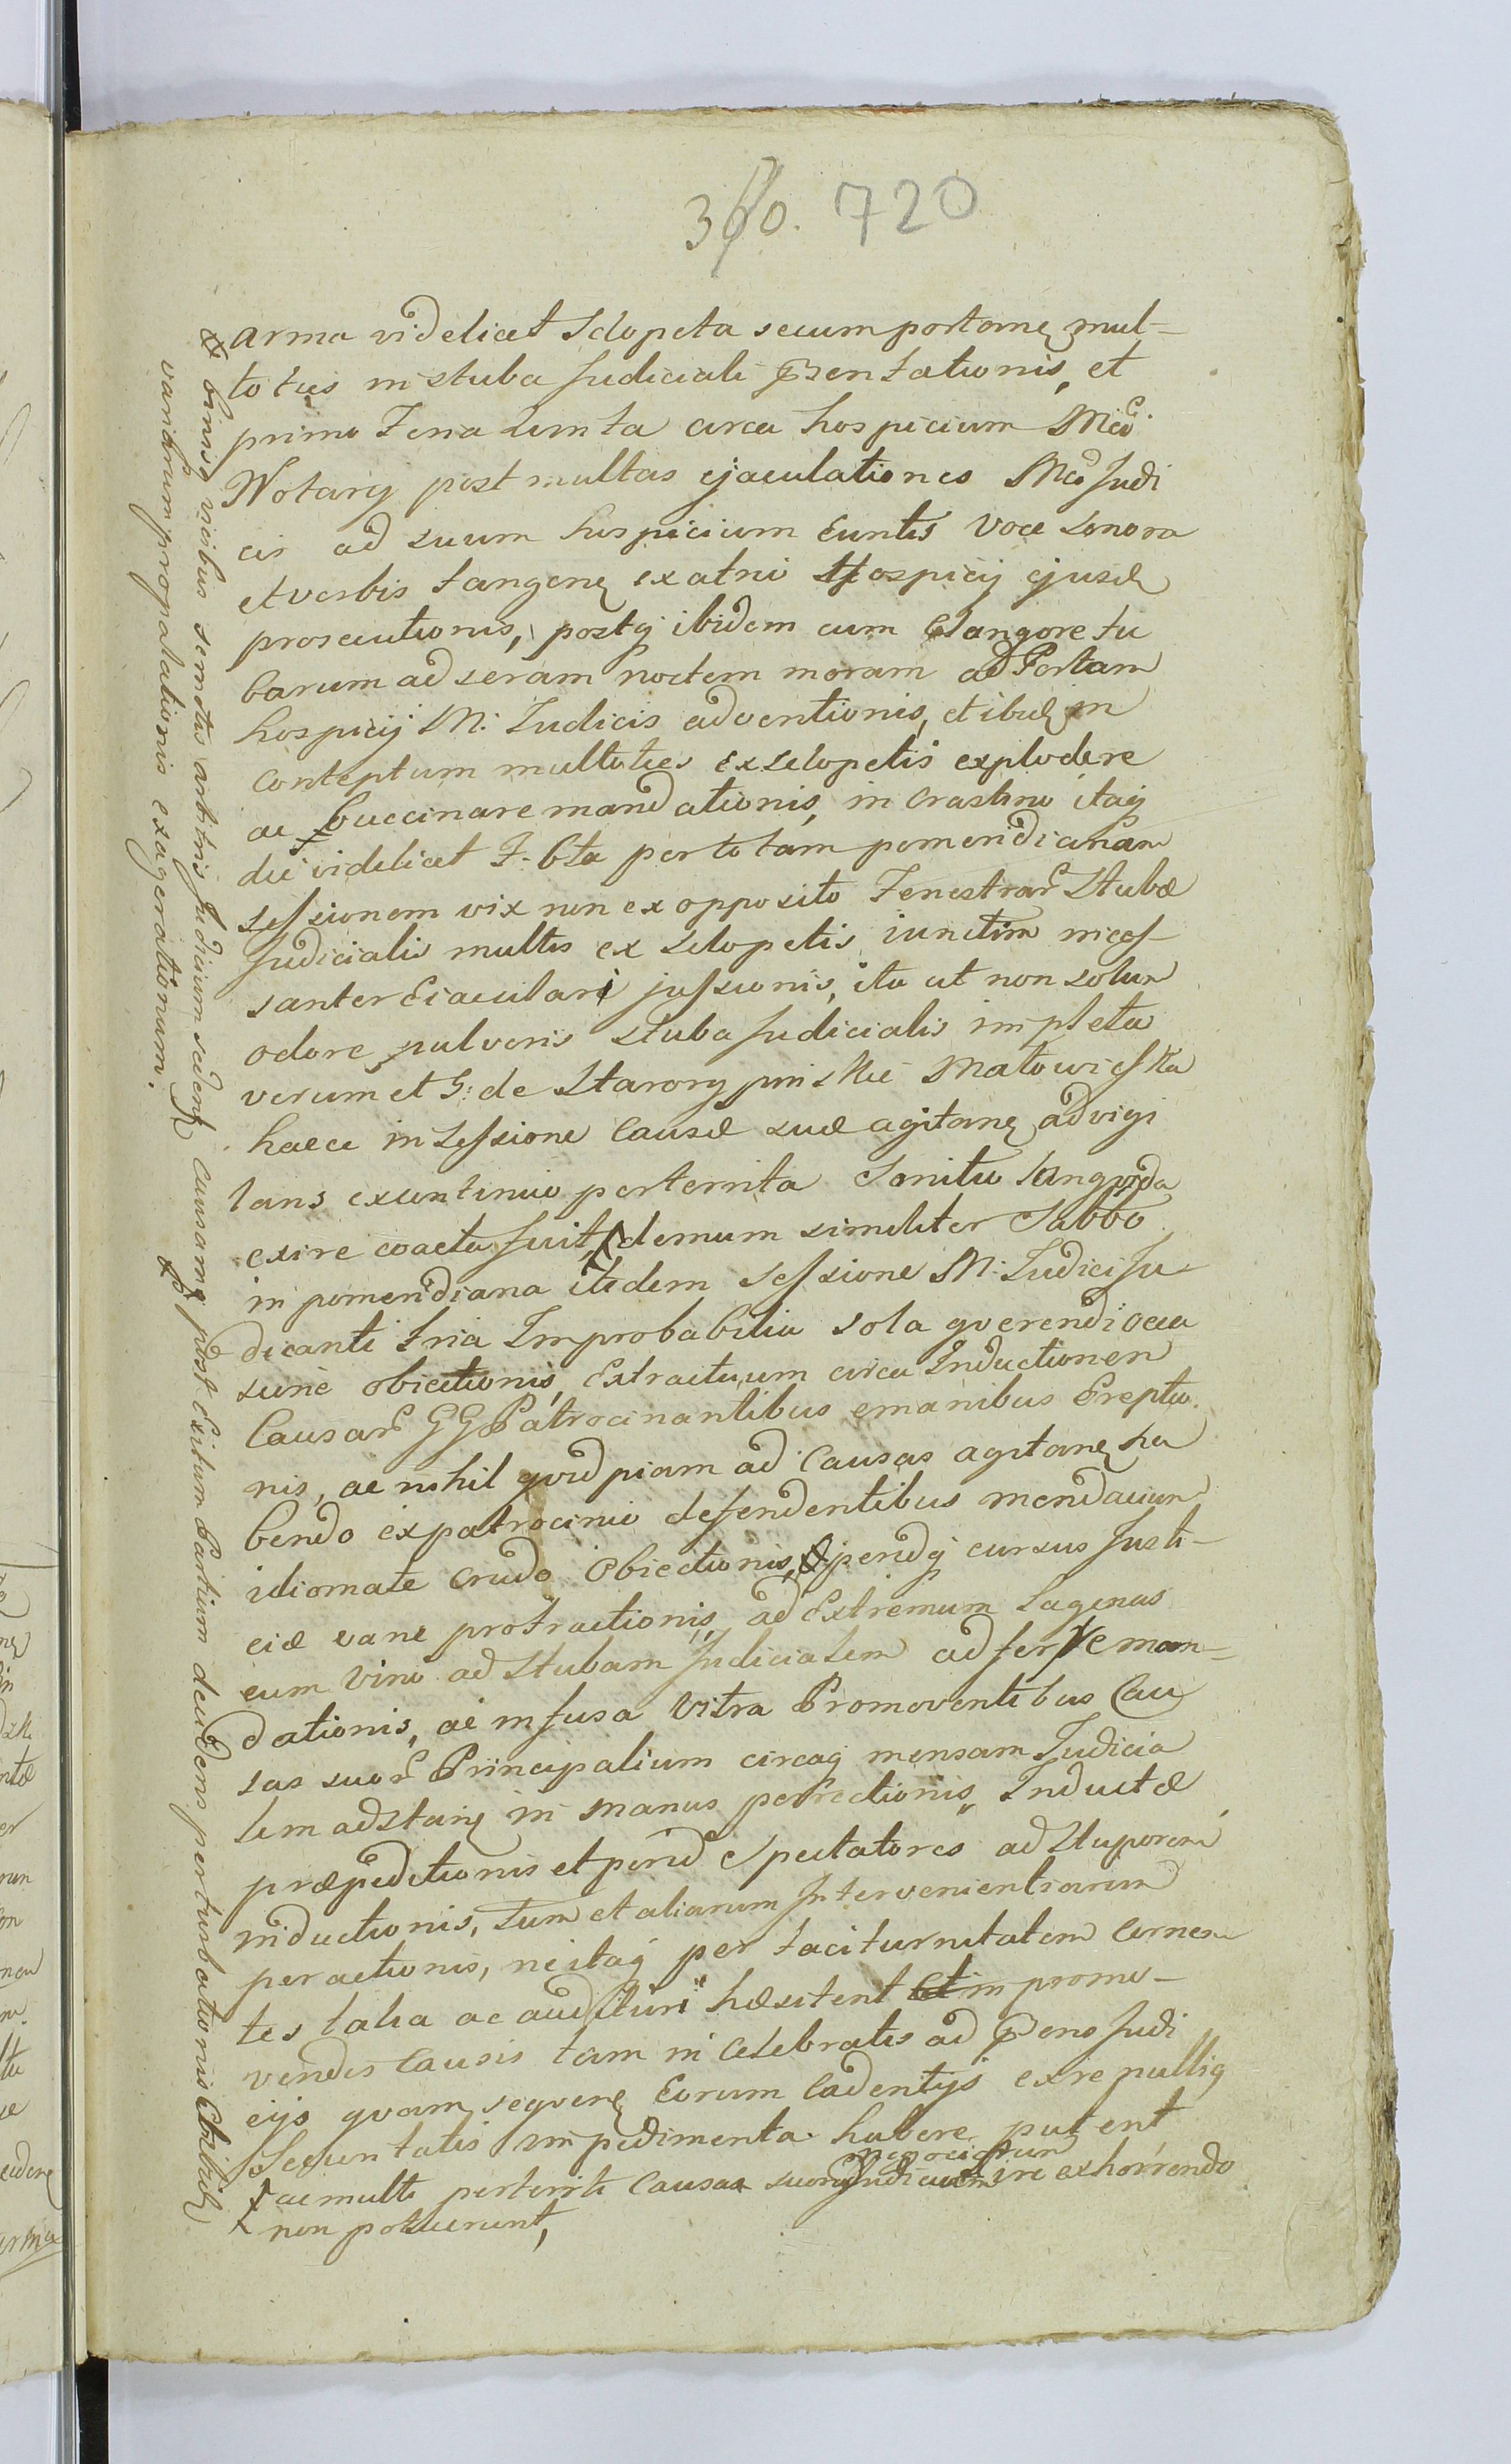 360. 720
arma videlicet sclopeta secum portane mul-
toties in stuba Judiciali pszentationis, et
primo Feria Zunta circa hospicium Mci
Notarij post multas ejaculationes Mci Judi
cis ad suum hospicium Euntis voce sonora
et verbis tangenę ex atrio Hospicij ejusd
prosecutionis, postq ibidem cum Clangore tu
barum ad seram noctem moram ad Portam
hospicij M: Judicis adventionis, et ibid in
conteptum multoties ex sclopetis explodere
ac buccinare mandationis, in crastino itaq
die videlicet F. 6ta per totam pomeridianam
sessionem vix non ex opposito Fenestrar Stubæ
Judicialis multis ex sclopetis iunctim inces-
santer Eiaculari jussionis, ita ut non solum
odore pulveris stuba Judicialis impleta
verum et G: de Starorypinskie Matowieska
haece in Sessione Causæ suæ agitanę advigi
lans ex continuo perterrita Sonitu languida
exire coacta fuit, demum similiter Sabbo
in pomeridiana itidem Sessione M: Judici Ju
dicanti tria Improbabilia sola qverendi occa
sione obiectionis, Extractuum circa Inductionem
Causar GG Patrocinantibus emanibus Ereptio
nis, ac nihil qvidpiam ad Causas agitanę ha
bendo ex patrocinio defendentibus mendacium
idiomate crudo Obiectionis, peridq cursus Justi-
ciæ vane protractionis, ad Extremum Lagenas
cum vino ad Stubam Judicialem adferre man-
dationis, ac infusa Vitra Promoventibus Cau
sas suor Principalium circaq mensam Judicia
lem adstanę in manus porrectionis, Inductæ
præpeditionis et perid Spectatores ad Stuporem
inductionis, tum et aliarum Intervenientiarum
peractionis, ne itaq per taciturnitatem cernen
tes talia ac audituri hæsitent in promo-
vendis Causis tam in celebratis ad psens Judi
cijs qvam seqvenę Eorum Cadentijs exire nulliq
Securitatis impedimenta habere putent
ac multi perterriti Causas suorum negociorum Judicium ire exhorrendo
non potuerunt,
binis vicibus semotis arbitris Judicium sedenę Causamq post Exitum Partium decidens perturbationis Cbiliq
varibrum propalationis exagerationum.